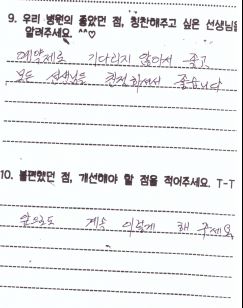 9. 우리 병원의 좋았던 점, 칭찬해주고 싶은 선생님을
알려주세요. ^^♡
예약제로 기다리지 않아서 좋고
모든 선생님들 친절하셔서 좋습니다
10. 불편했던 점, 개선해야 할 점을 적어주세요. T-T
앞으로도 계속 이렇게 해 주세요